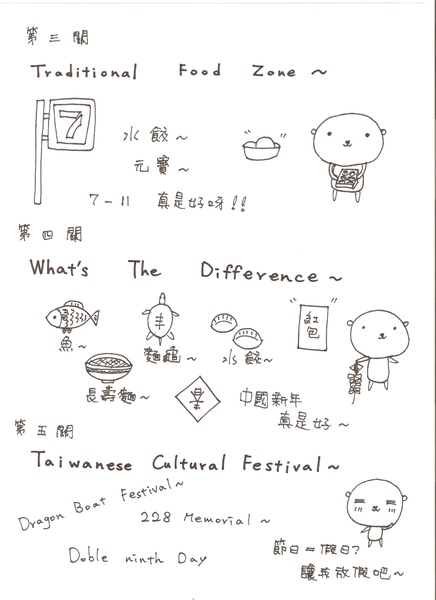 第三關
Traditional Food Zone ~
7
水餃~
元寶~
7-11 真是好呀!!
第四關
What's The Difference ~
紅包
魚~
麵龜~
水餃~
長壽麵~
中國新年
真是好~
第五關
Taiwanese Cultural Festival ~
Dragon Boat Festival~
228 Memorial ~
Doble ninth Day
節日=假日?
讓我放假吧~